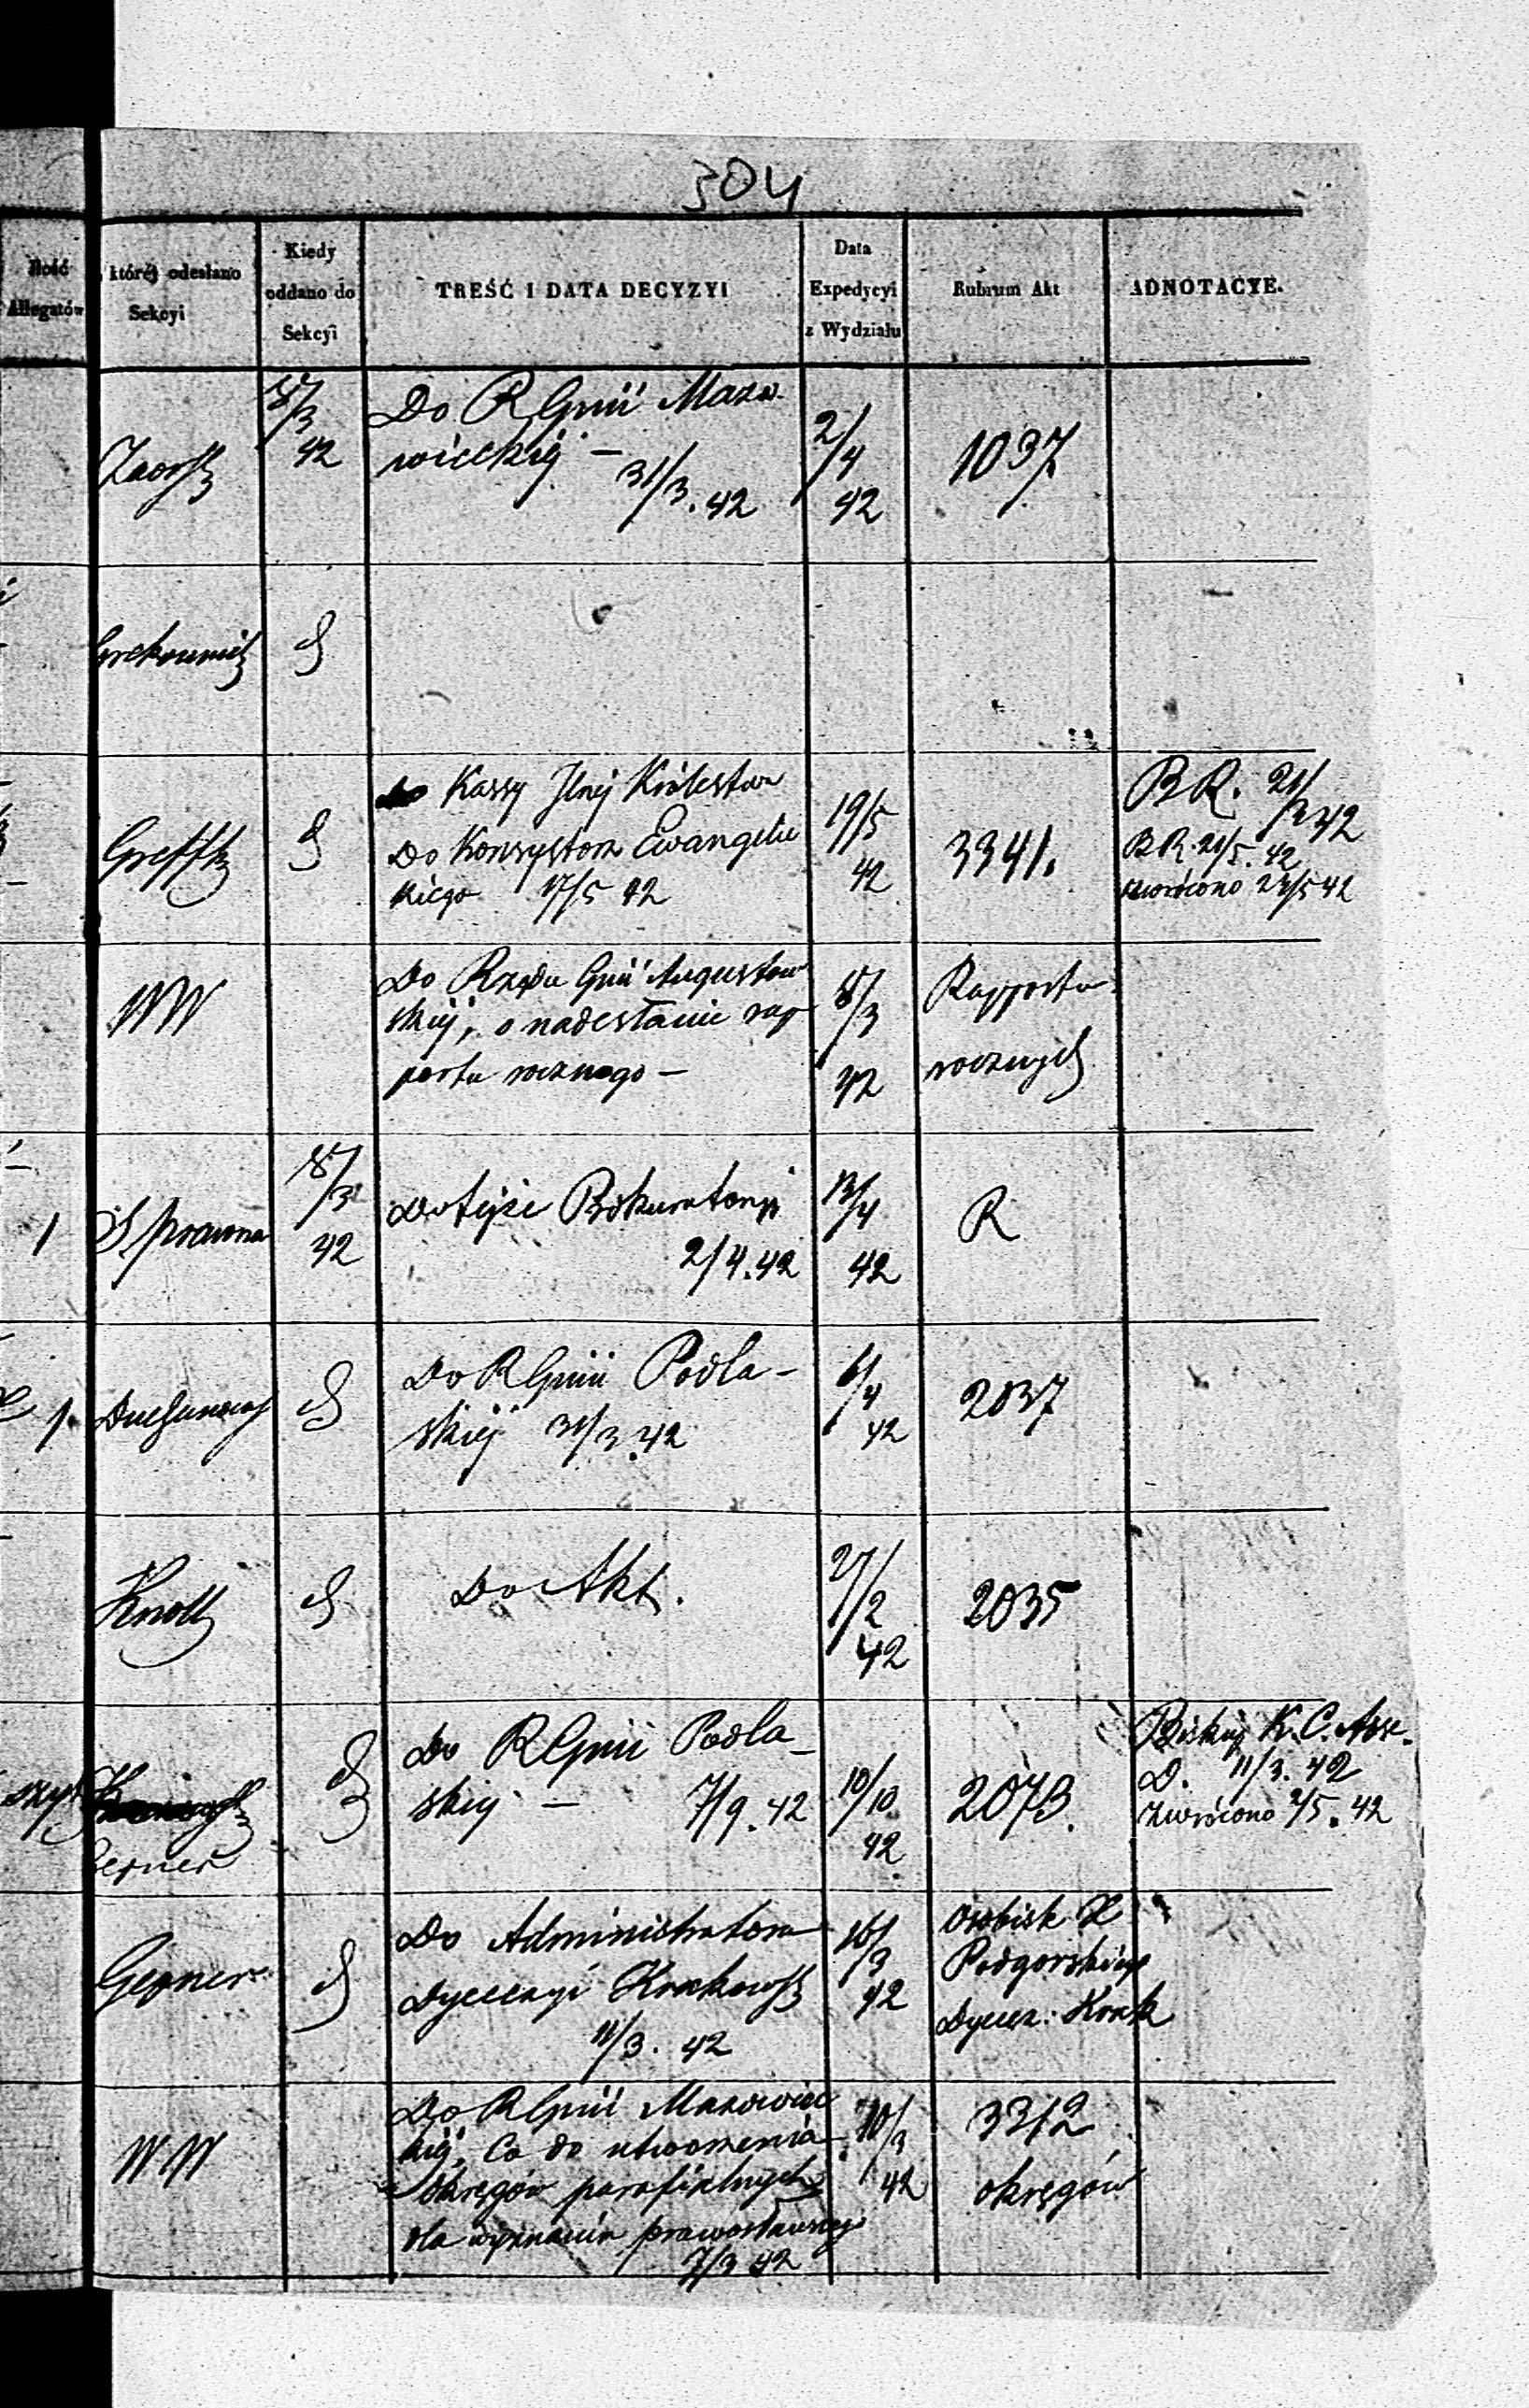 304
Ilość
Allegatów
któréj odesłano
Sekcyi
Kiedy
oddano do
Sekcyi
TREŚĆ I DATA DECYZYI
Data
Expedycyi
z Wydziału
Rubrum Akt
ADNOTACYE.
8/3
42
Do RGnii Mazo-
wieckiej —
31/3. 42
2/4
42
1037
Do Konsystorza Evangelic
kiego 17/5 42
19/5
42
3341.
BR.
BR. 21/5. 42
zwrócono
WW
Do Rządu Gnii Augustow
skiej, o nadesłanie rap
portu rocznego —
8/3
42
Rapporta
rocznych
1
S prawna
8/3
42
Do tejże Prokuratoryi
2/4. 42
13/4
42
R
1
Do RGnii Podla-
skiej 31/3. 42
6/4
42
2037
Knoll
Do Akt.
27/2
42
2035
Gepner
Do RGnii Podla-
skiej — 7/9. 42
10/10
42
2073.
Biskup K. C.
D. 11/3. 42
Zwrócono 2/5. 42
Gepner
Do Administratora
Dyecezyi Krakows
11/3. 42
16/3
42
Osobist. X
Podgorskiego
Dyecez: Krak
WW
Do RGnii Mazowiec
kiej, Co do utworzenia
okręgów parafialnych
dla wyznania prawosławnego
7/3 42
10/3
42
3312
okręgów